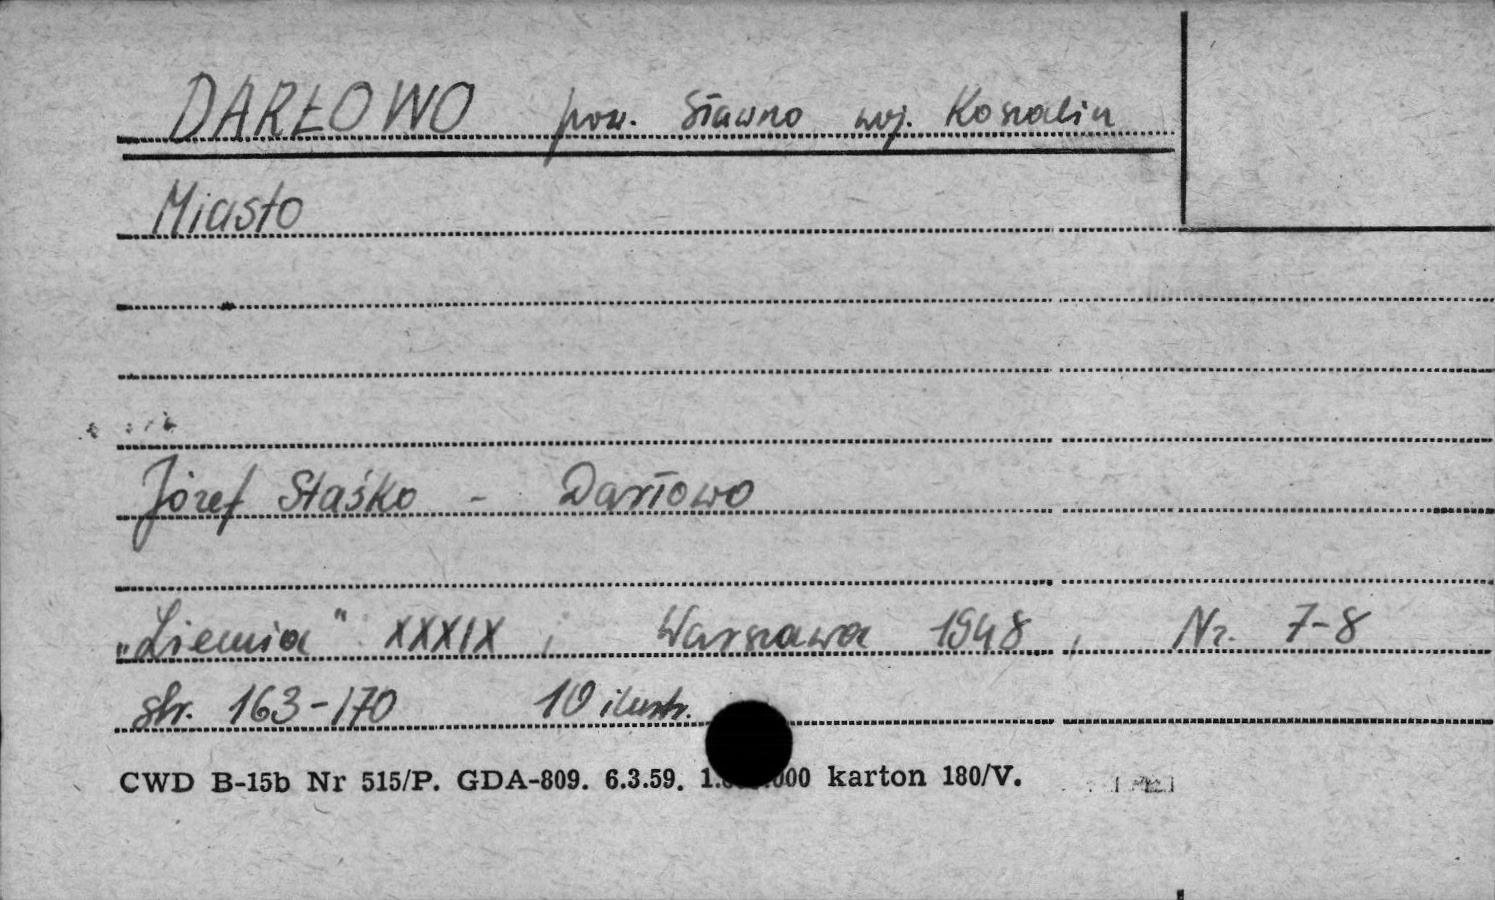 DARŁOWO pow. Sławno woj. Koszalin
Miasto
Józef Staśko - Darłowo
„Ziemia" XXXIX, Warszawa 1948, Nr. 7-8
str. 163-170 10 ilustr.
CWD B-15b Nr 515/P. GDA-809. 6.3.59. karton 180/V.